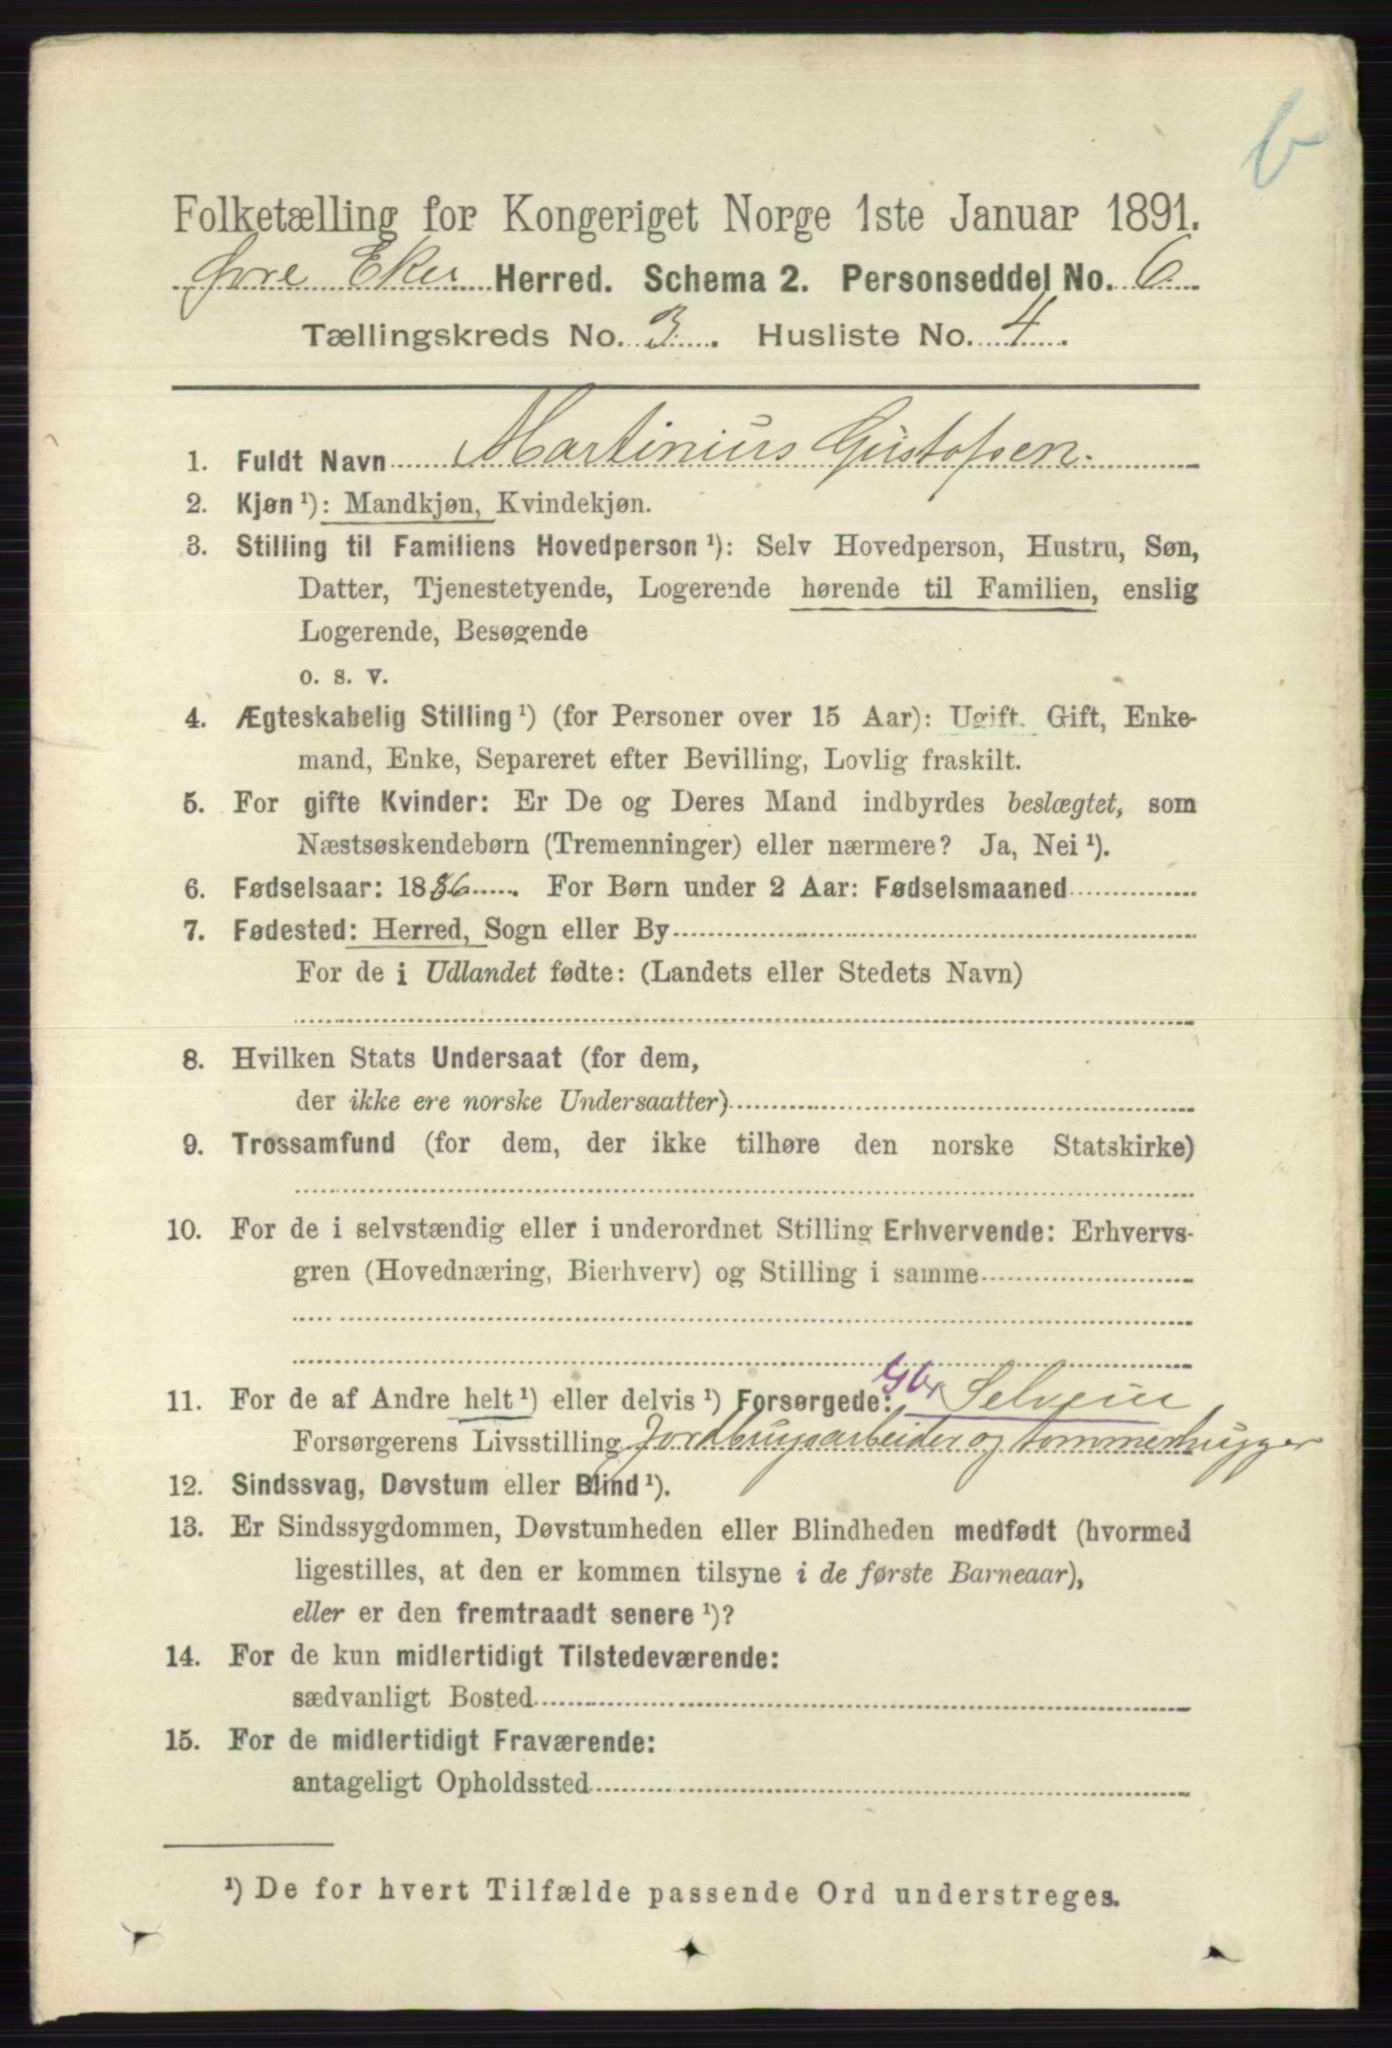 b
Folketælling for Kongeriget Norge 1ste Januar 1891.
Øvre Eker Herred. Schema 2. Personseddel No. 6
Tællingskreds No. 3. Husliste No. 4.
1. Fuldt Navn Martinius Gustafsen.
2. Kjøn ¹): Mandkjøn, Kvindekjøn.
3. Stilling til Familiens Hovedperson ¹): Selv Hovedperson, Hustru, Søn,
Datter, Tjenestetyende, Logerende hørende til Familien, enslig
Logerende, Besøgende
o. s. v.
4. Ægteskabelig Stilling ¹) (for Personer over 15 Aar): Ugift. Gift, Enke-
mand, Enke, Separeret efter Bevilling, Lovlig fraskilt.
5. For gifte Kvinder: Er De og Deres Mand indbyrdes beslægtet, som
Næstsøskendebørn (Tremenninger) eller nærmere? Ja, Nei ¹).
6. Fødselsaar: 1886. For Børn under 2 Aar: Fødselsmaaned
7. Fødested: Herred, Sogn eller By
For de i Udlandet fødte: (Landets eller Stedets Navn)
8. Hvilken Stats Undersaat (for dem,
der ikke ere norske Undersaatter)
9. Trossamfund (for dem, der ikke tilhøre den norske Statskirke)
10. For de i selvstændig eller i underordnet Stilling Erhvervende: Erhvervs-
gren (Hovednæring, Bierhverv) og Stilling i samme
11. For de af Andre helt ¹) eller delvis ¹) Forsørgede: Gbr Selveier
Forsørgerens Livsstilling Jordbrugsarbeider og tømmerhugger
12. Sindssvag, Døvstum eller Blind ¹).
13. Er Sindssygdommen, Døvstumheden eller Blindheden medfødt (hvormed
ligestilles, at den er kommen tilsyne i de første Barneaar),
eller er den fremtraadt senere ¹)?
14. For de kun midlertidigt Tilstedeværende:
sædvanligt Bosted
15. For de midlertidigt Fraværende:
antageligt Opholdssted
¹) De for hvert Tilfælde passende Ord understreges.